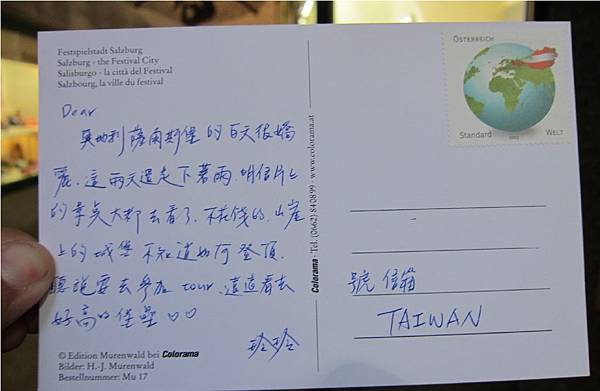 Festspielstadt Salzburg
Salzburg - the Festival City
Salisburgo - la città del Festival
Salzbourg, la ville du festival
Dear
奧地利薩爾斯堡的白天很嬌
麗.這兩天還是下著雨.明信片上
的景點大都去看了.不花錢的.山崖
上的城堡不知道如何登頂.
聽說要去參加 tour.遠遠看去
好高的堡壘♡♡
玲玲
© Edition Murenwald bei Colorama
Bilder: H.-J. Murenwald
Bestellnummer: Mu 17
Colorama · Tel. (0662) 84 08 99 · www.colorama.at
ÖSTERREICH
Standard
WELT
號 信箱
TAIWAN